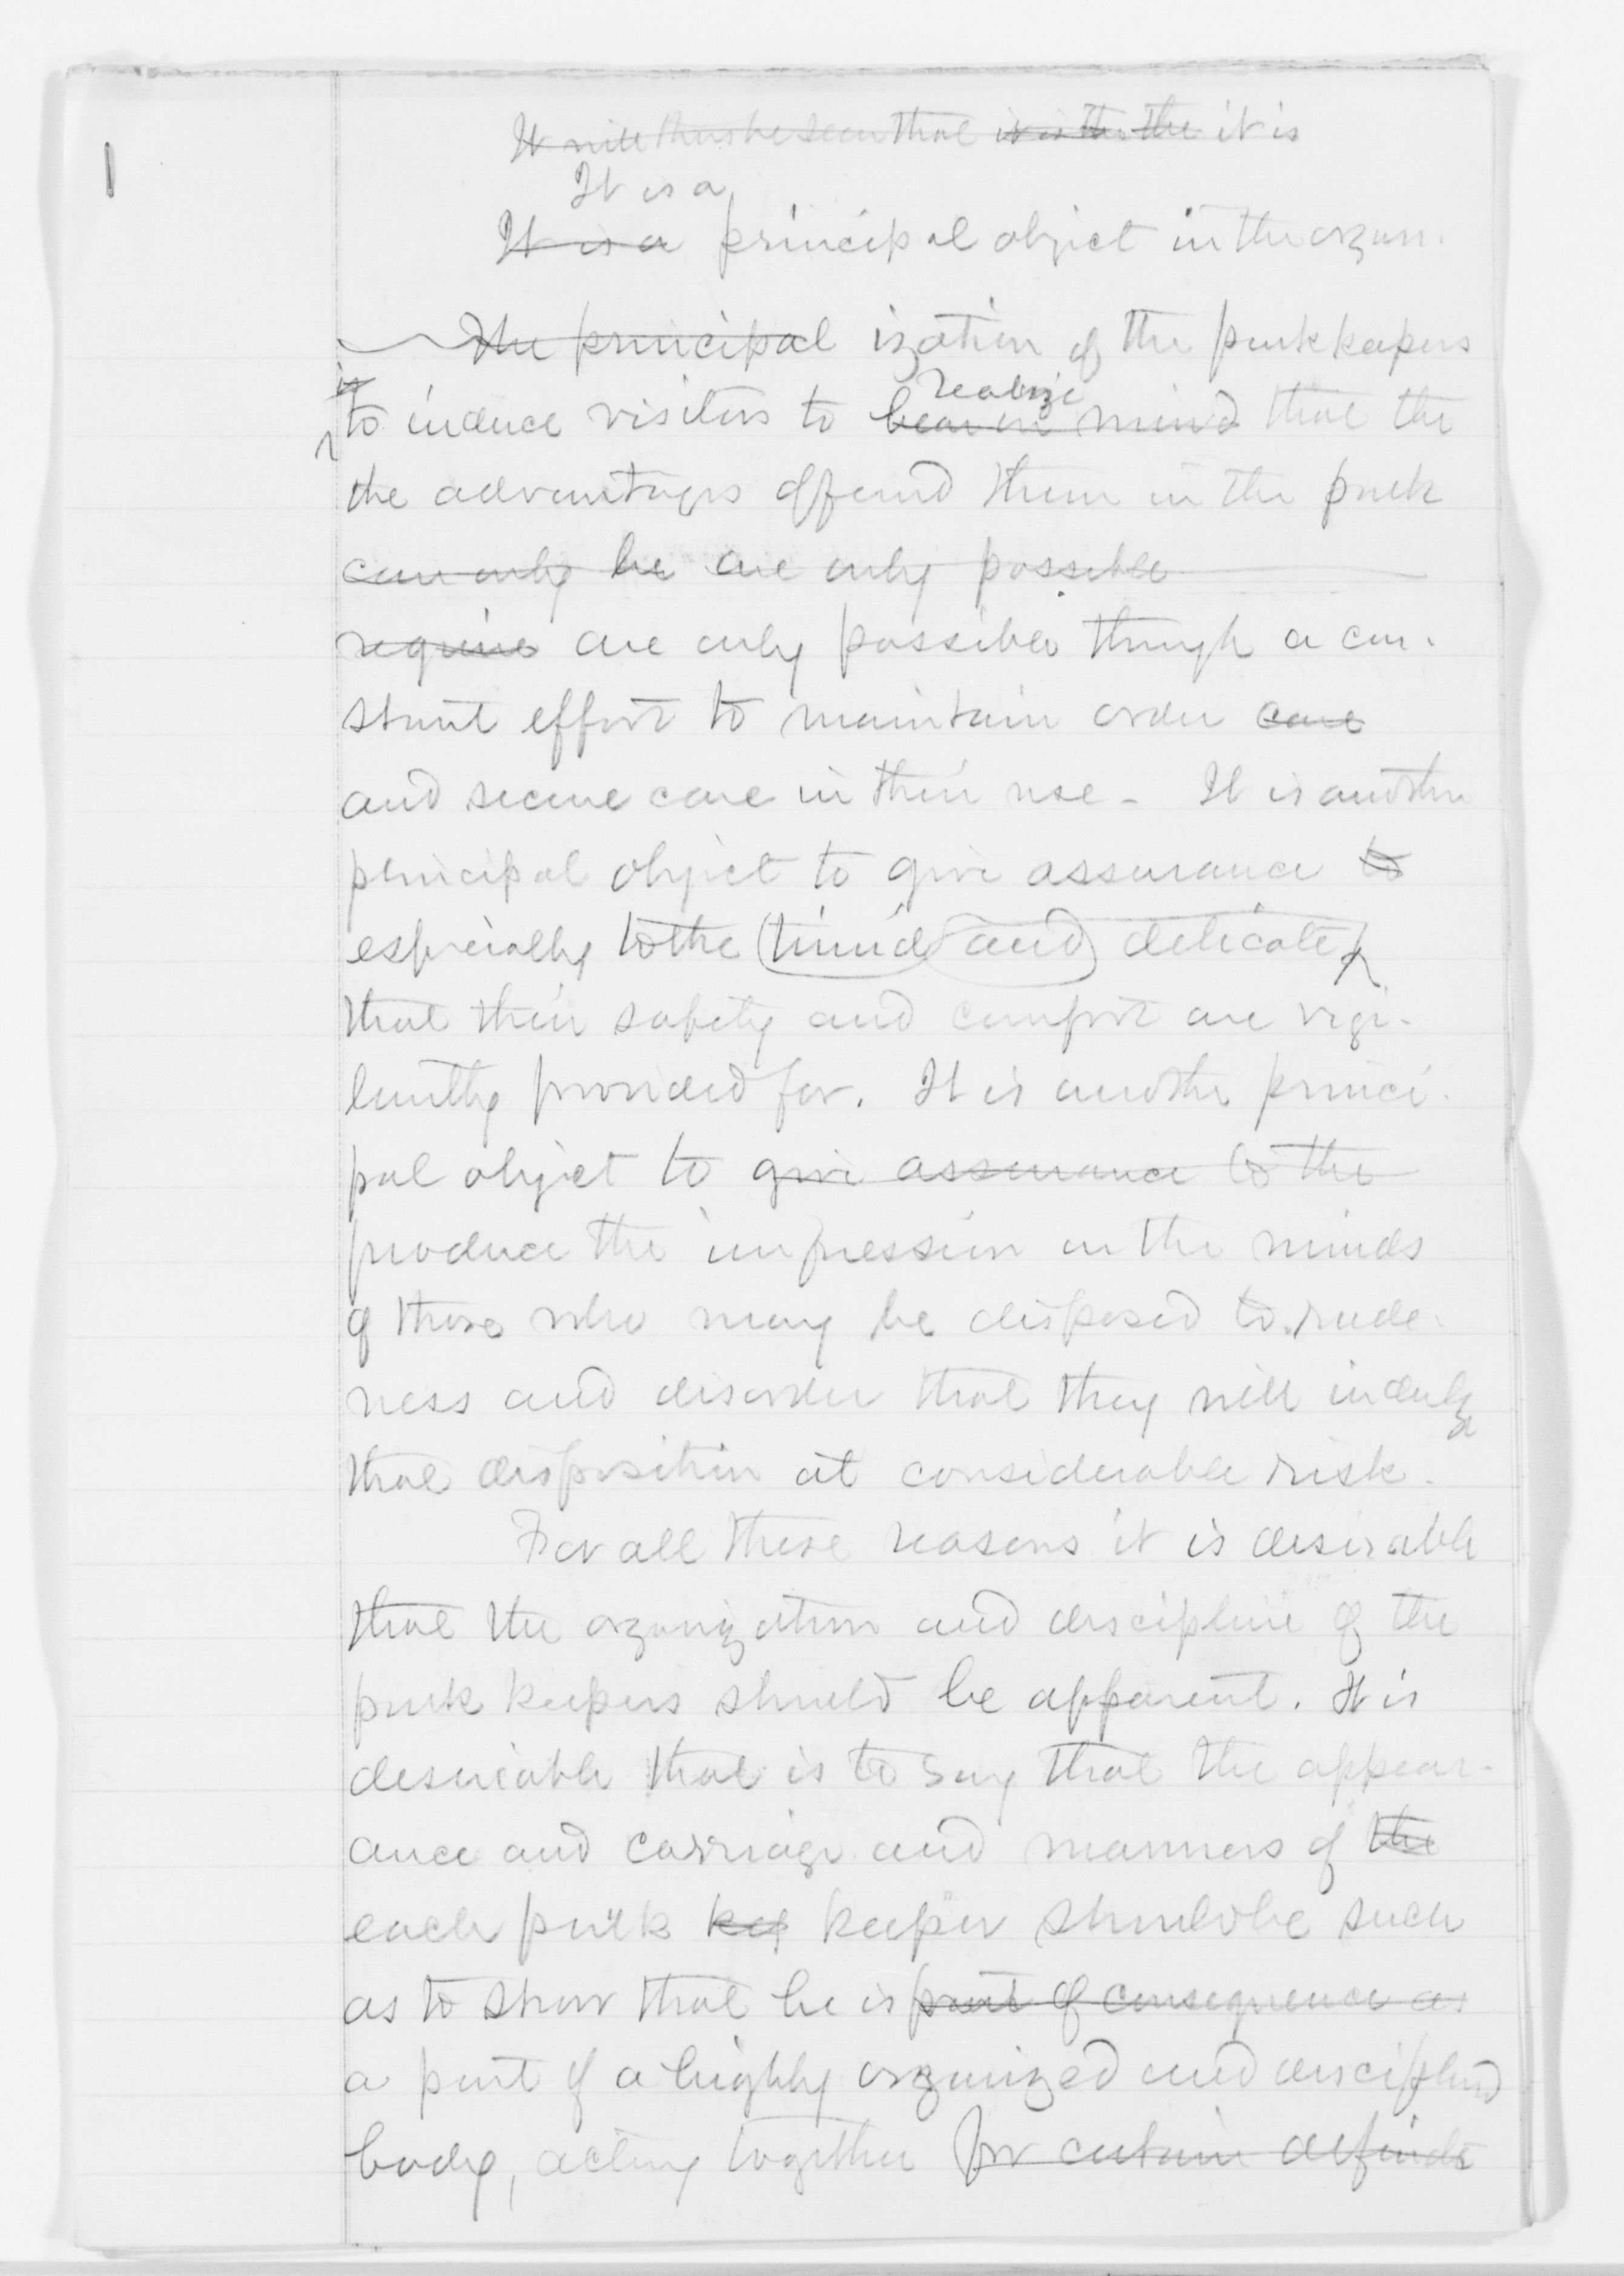 1
It will thus be seen that it is the the it is
It is a
It is a principal object in the organ-
The principal ization of the park keepers
is
realize
to induce visitors to bear in mind that the
the advantages offered them in the park
can only be are only possible
require are only possible through a con-
stant effort to maintain order care
and secure care in their use - It is another
principal object to give assurance to
especially to the timid and delicate
that their safety and comfort are vigi-
lantly provided for. It is another princi-
pal object to give assurance to the
produce the impression on the minds
of those who may be disposed to rude-
ness and disorder that they will indulge
that disposition at considerable risk.
For all these reasons it is desirable
that the organization and discipline of the
park keepers should be apparent. It is
desirable that is to say that the appear-
ance and carriage and manners of the
each park kee keeper should be such
as to show that he is part of consequence as
a part of a highly organized and disciplined
body, acting together for certain definite